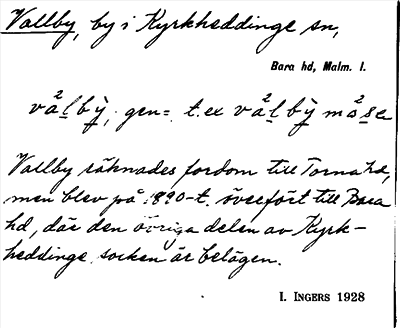 Vallby, by i Kyrkheddinge sn,
Bara hd, Malm. l.
vålbỳ, gen= t.ex vålbỳ måsa
Vallby räknades fordom till Torna hd,
men blev på 1890-t. överfört till Bara
hd, där den övriga delen av Kyrk-
heddinge socken är belägen.
I. INGERS 1928